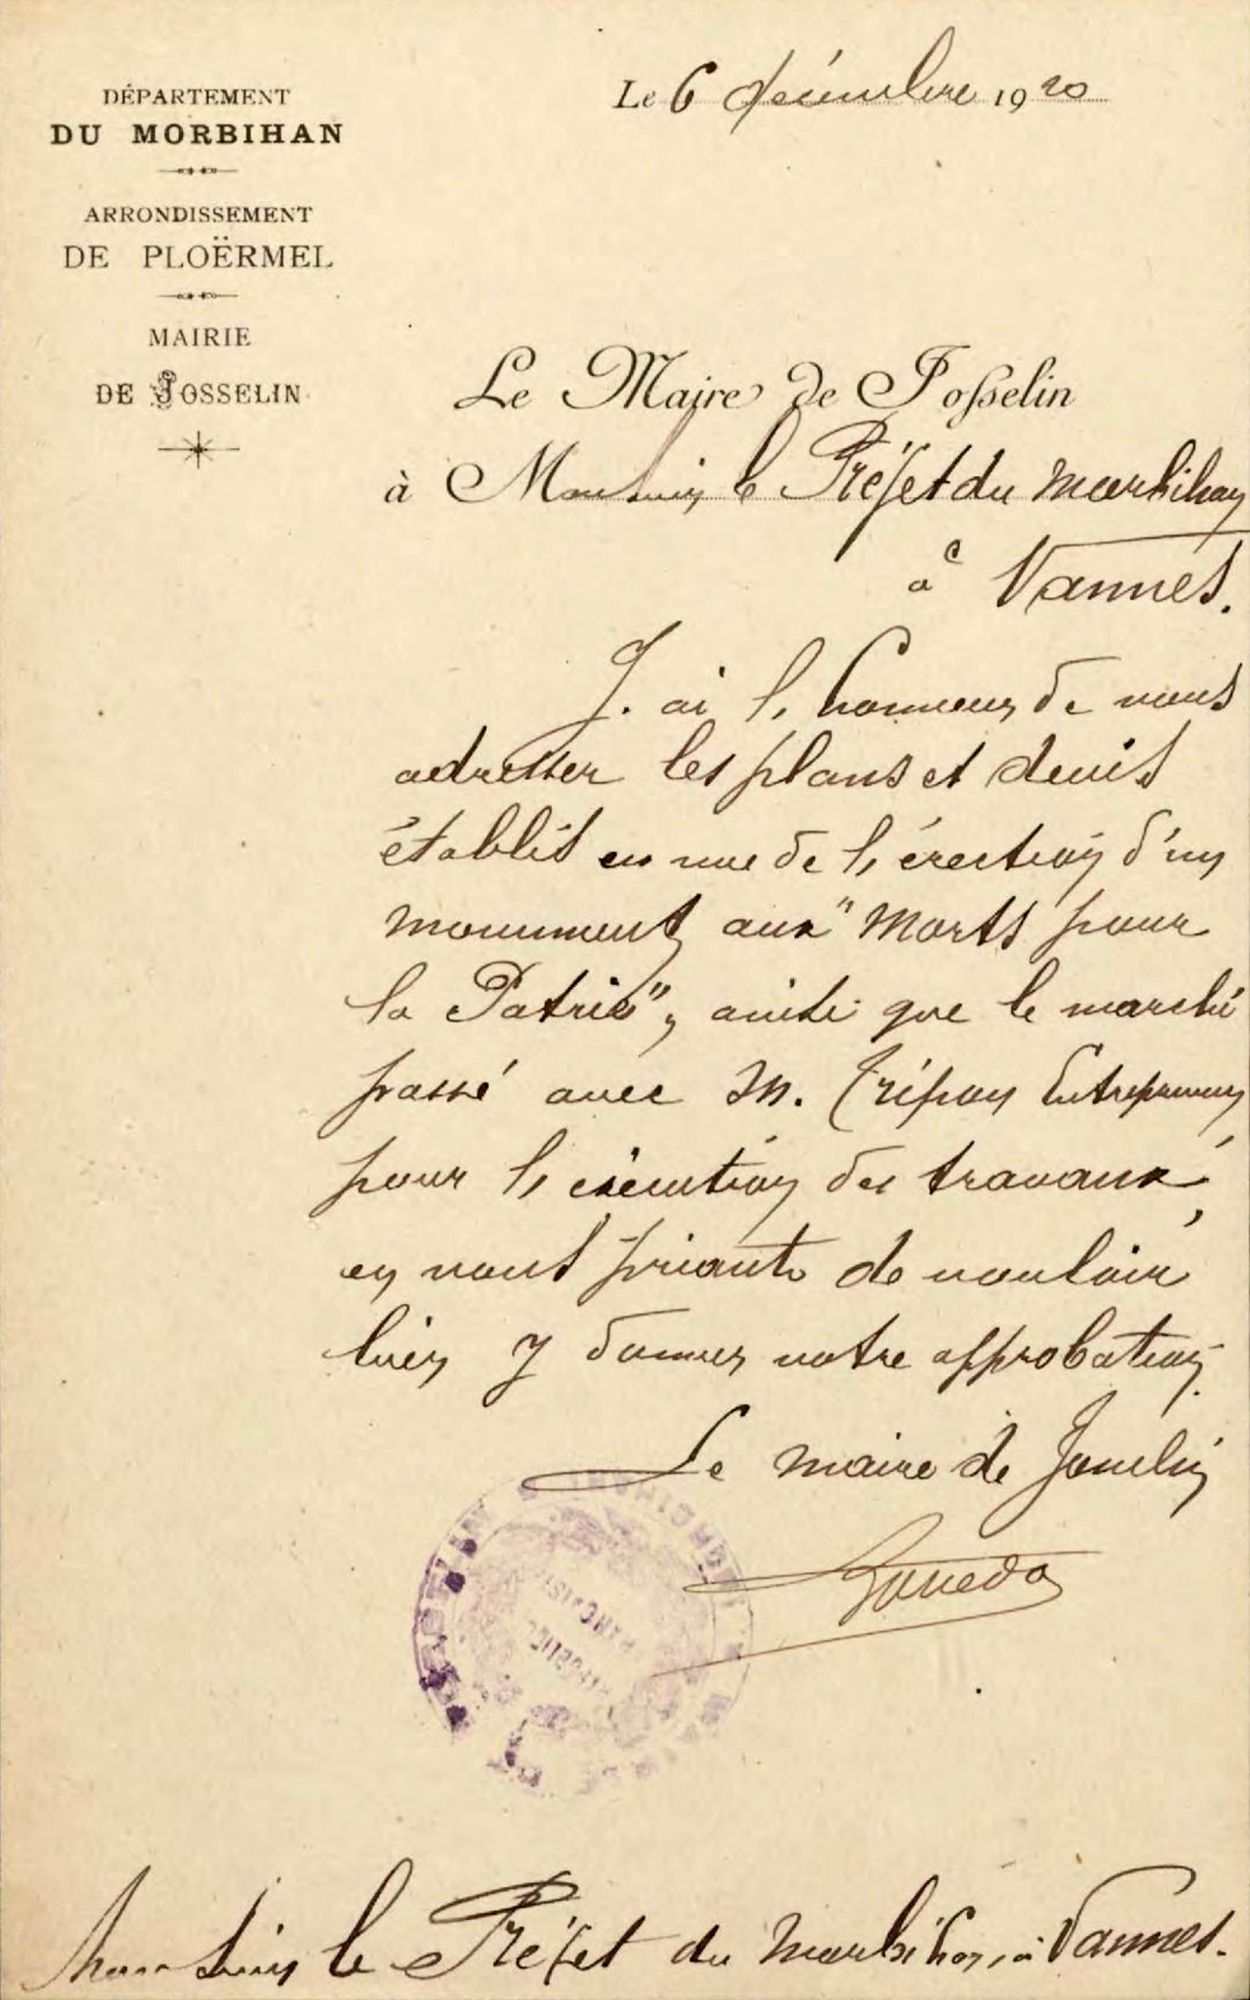 DÉPARTEMENT
DU MORBIHAN
ARRONDISSEMENT
DE PLOËRMEL
MAIRIE
DE JOSSELIN
Le 6 décembre 1920
Le Maire de Josselin
à Monsieur le Préfet du Morbihan
à Vannes.
J'ai l'honneur de vous
adresser les plans et devis
établis en vue de l'érection d'un
monument aux "Morts pour
la Patrie", ainsi que le marché
passé avec M. Tripon Entrepreneur
pour l'exécution des travaux,
en vous priant de vouloir
bien y donner votre approbation.
Le maire de Josselin
Monsieur le Préfet du Morbihan, à Vannes.